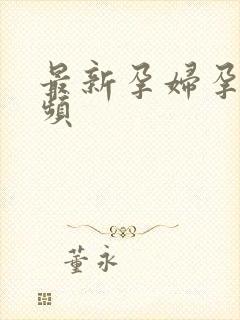 最新孕婦孕
頻
董永